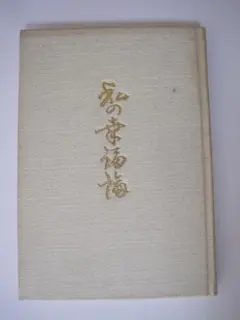 私の幸福論